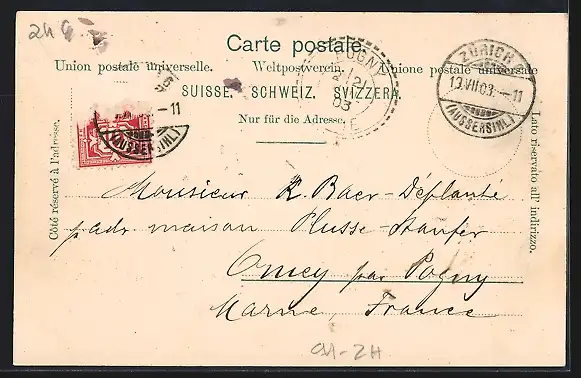 Carte postale.
Union postale universelle. Weltpostverein. Unione postale universale
SUISSE. SCHWEIZ. SVIZZERA.
Nur für die Adresse.
Côté réservé à l'adresse.
Lato riservato all' indirizzo.
ZÜRICH
19.VII.03. - 11
(AUSSERSIHL)
POGNY
21
03
- 11
(AUSSERSIHL)
Monsieur K. Baer-Déplanté
p. adr. maison Plusse-Staufer
Omey par Pogny
Marne, France